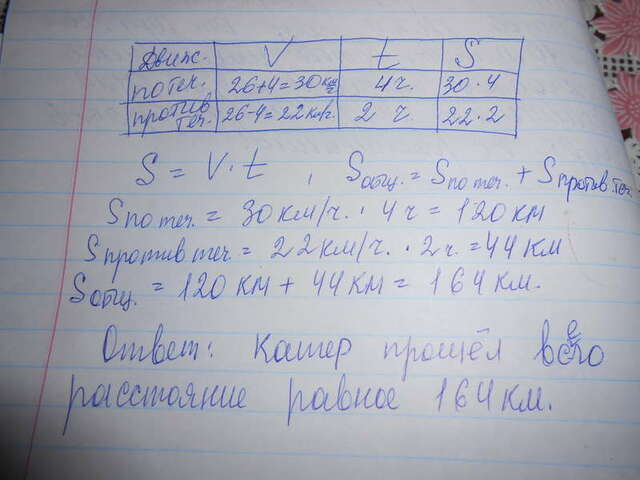 Движ. V t S
по теч. 26+4=30км/ч 4ч. 30·4
против теч. 26-4=22км/ч. 2 ч 22·2
S = V·t , Sобщ.= Sпо теч. + Sпротив теч.
Sпо теч. = 30 км/ч. · 4 ч = 120 км
Sпротив теч. = 22км/ч. · 2ч. = 44 км
Sобщ. = 120 км + 44 км = 164 км.
Ответ: катер прошёл всего
расстояние равное 164 км.